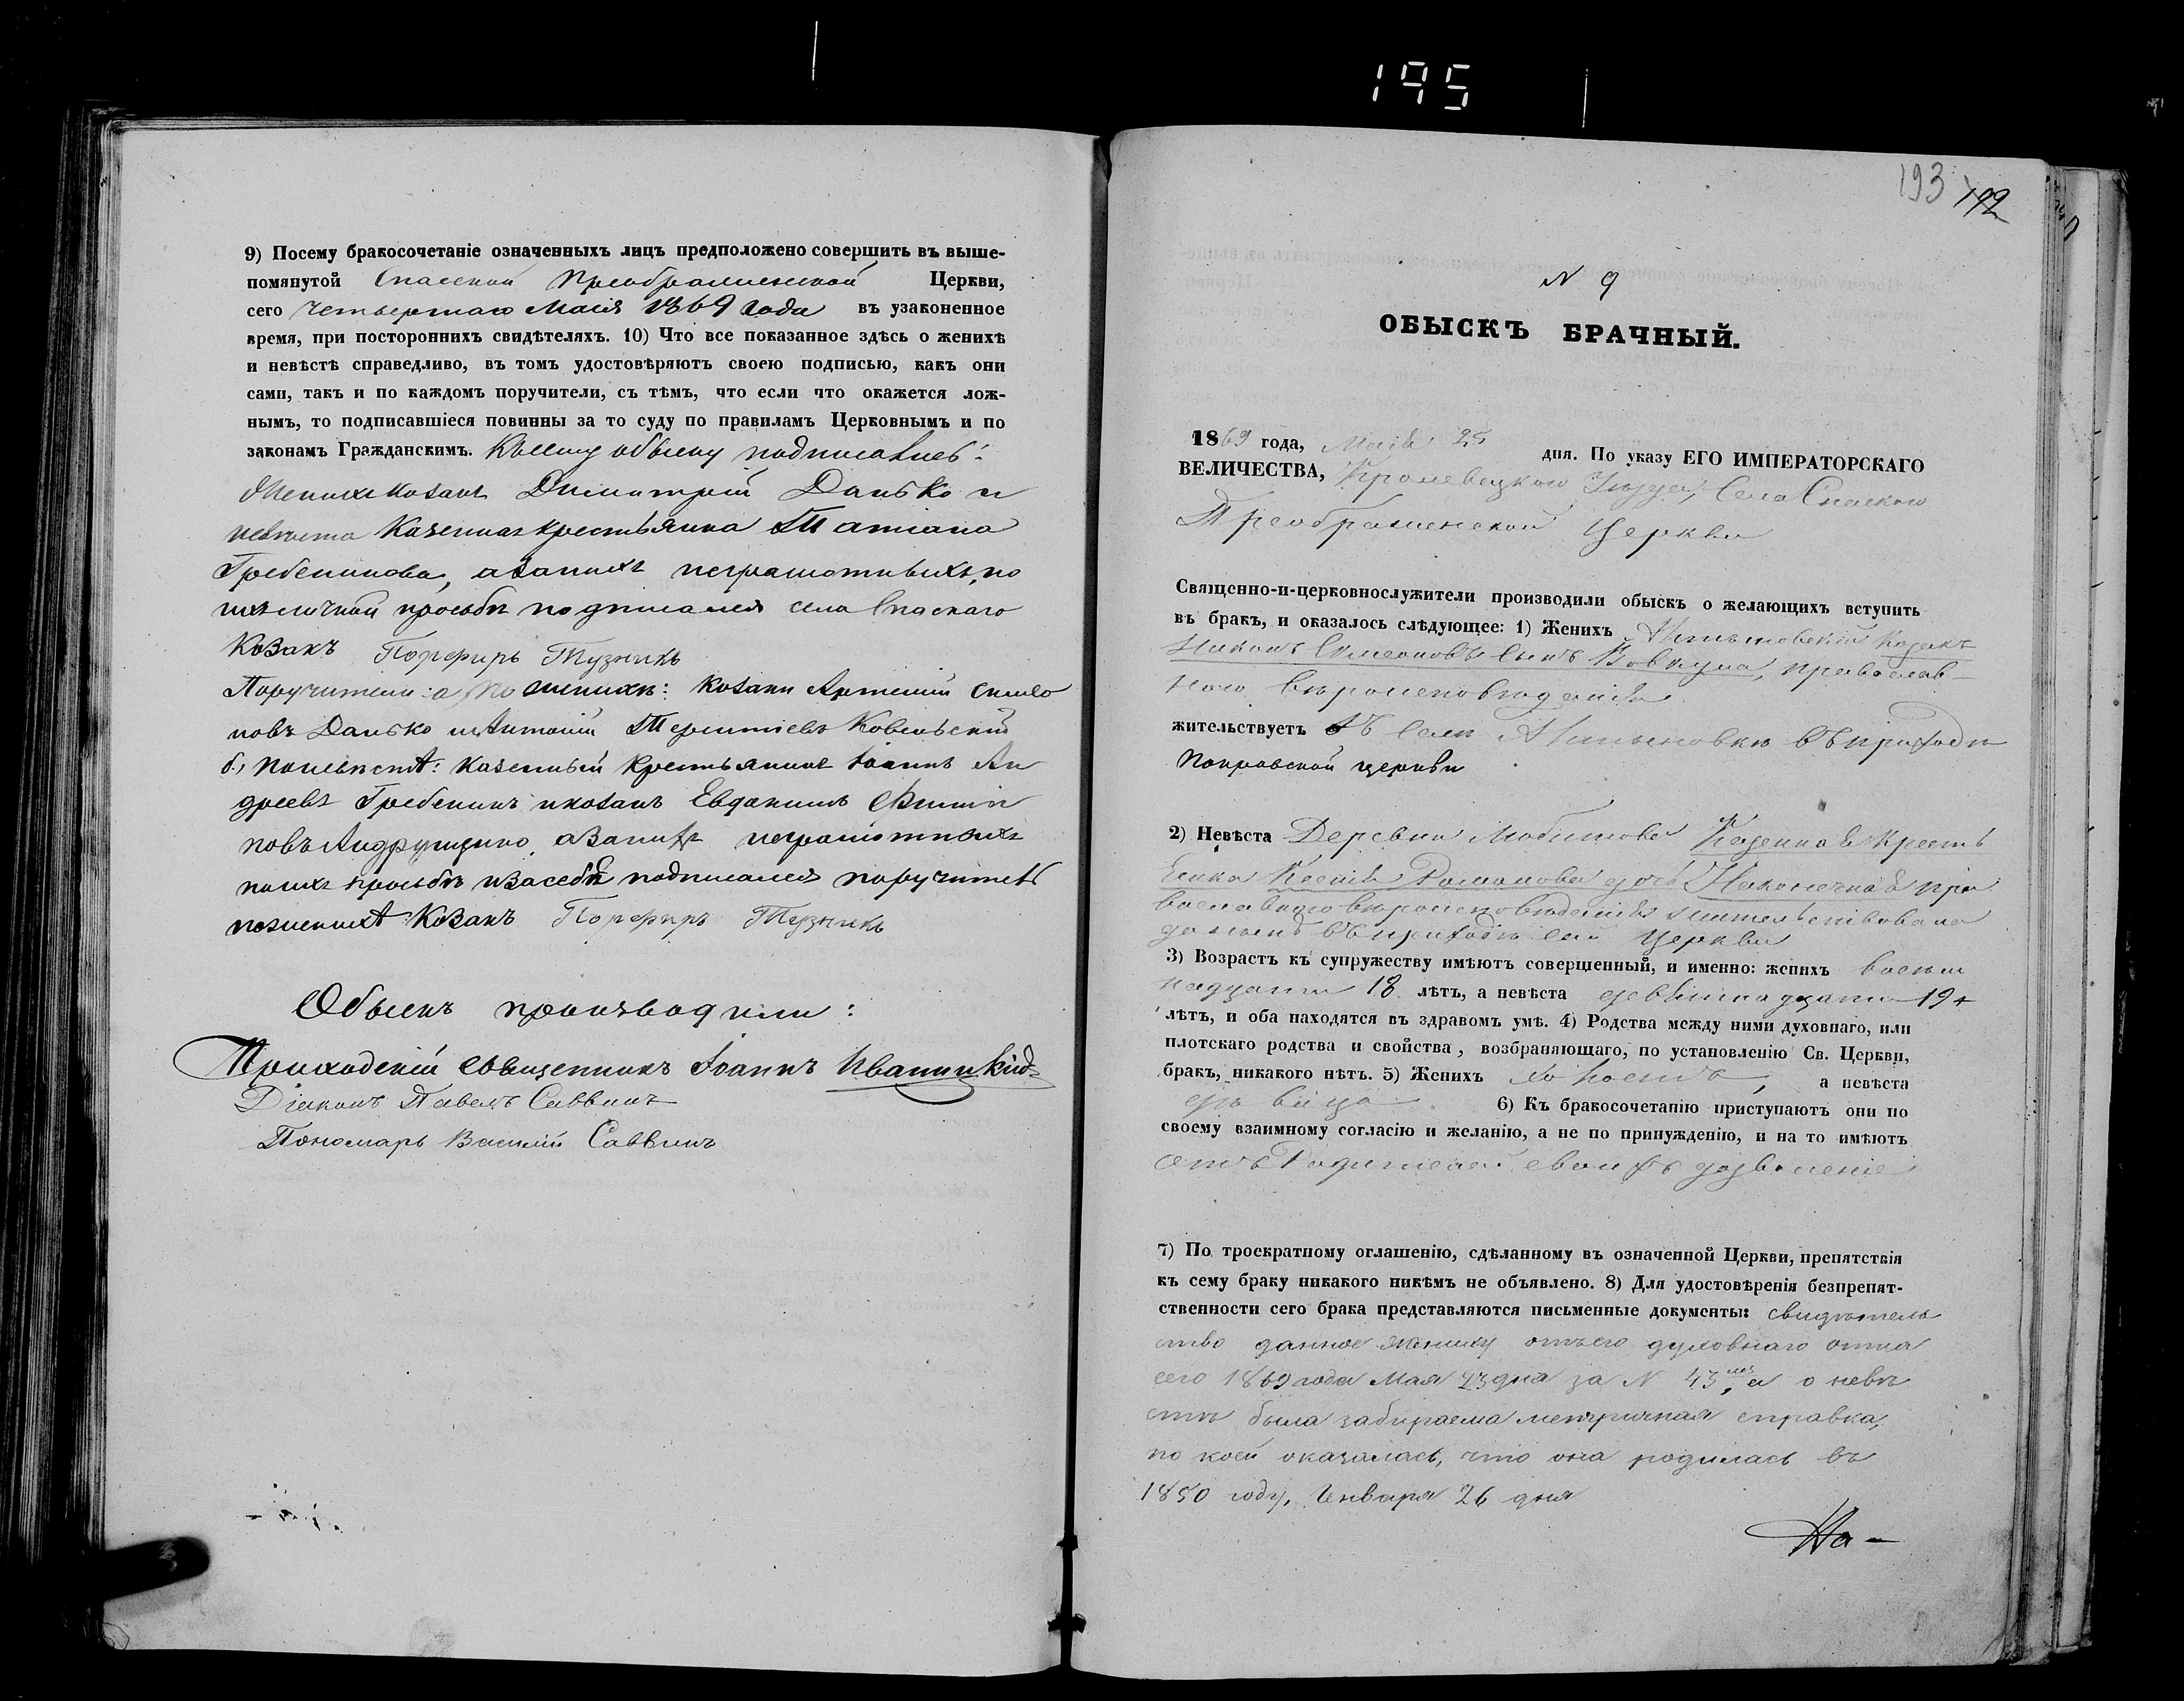 195
9) Посему бракосочетаніе означенныхъ лицъ предположено совершить въ выше-
помянутой Спаской Преображенской Церкви,
сего четвертаго Маія 1869 года въ узаконенное
время, при постороннихъ свидѣтеляхъ. 10) Что все показанное здѣсь о женихѣ
и невѣстѣ справедливо, въ томъ удостовѣряютъ своею подписью, какъ они
сами, такъ и по каждомъ поручители, съ тѣмъ, что если что окажется лож-
нымъ, то подписавшіеся повинны за то суду по правиламъ Церковнымъ и по
законамъ Гражданскимъ. Къ сему обыску подписались:
Женихъ козакъ Димитрій Данько и
невѣста Казенная крестьянка Татіана
Гребеникова, а за нихъ неграмотныхъ, по
ихъ личной просьбѣ подписался села Спаскаго
Козакъ Порфирь Тузникъ
Поручители: а по женихѣ: козаки Артемій Симео
новъ Данько и Антоній Терентіевъ Ковельскій
б, по невѣстѣ: казенный крестьянинъ Іоаннъ Ан
дреевъ Гребеникъ и козакъ Евдокимъ Филип
повъ Андрущенко, а за нихъ неграмотныхъ
по ихъ просьбѣ и за себѣ подписался поручитель
по женихѣ Козакъ Порфирь Тузникъ
Обыскъ производили:
Приходскій священникъ Іоаннъ Иваницкій
Діаконъ Павелъ Саввичъ
Пономарь Василій Саввичъ
193 192
N 9
ОБЫСКЪ БРАЧНЫЙ.
1869 года, Маія 25 дня. По указу ЕГО ИМПЕРАТОРСКАГО
ВЕЛИЧЕСТВА, Кролевецкого Уѣзда, Села Спаского
Преображенской Церкви
Священно-и-церковнослужители производили обыскъ о желающихъ вступить
въ бракъ, и оказалось слѣдующее: 1) Женихъ козакъ
Никонъ Симеоновъ сынъ Вовкума, православ-
ного вѣроисповѣданія
жительствуетъ въ селѣ въ приходѣ
Покровской церкви
2) Невѣста Деревни Любитова Казенная Кресть
янка Ксенія Романова дочь Наконечная пра
вославного вѣроисповѣданія жительствовала
въ приходѣ сей Церкви
3) Возрастъ къ супружеству имѣютъ совершенный, и именно: женихъ восем
надцати 18 лѣтъ, а невѣста девятнадцати 19
лѣтъ, и оба находятся въ здравомъ умѣ. 4) Родства между ними духовнаго, или
плотскаго родства и свойства, возбраняющаго, по установленію Св. Церкви,
бракъ, никакого нѣтъ. 5) Женихъ холостъ, а невѣста
дѣвица. 6) Къ бракосочетанію приступаютъ они по
своему взаимному согласію и желанію, а не по принужденію, и на то имѣютъ
отъ Родителей своихъ дозволеніе
7) По троекратному оглашенію, сдѣланному въ означенной Церкви, препятствія
къ сему браку никакого никѣмъ не объявлено. 8) Для удостовѣренія безпрепят-
ственности сего брака представляются письменные документы: свидѣтель
ство данное жениху отъ его духовнаго отца
сего 1869 года Мая 23 дня за N 43, а о невѣ
стѣ была забираема метричная справка,
по коей оказалась, что она родилась въ
1850 году, Января 26 дня
На-